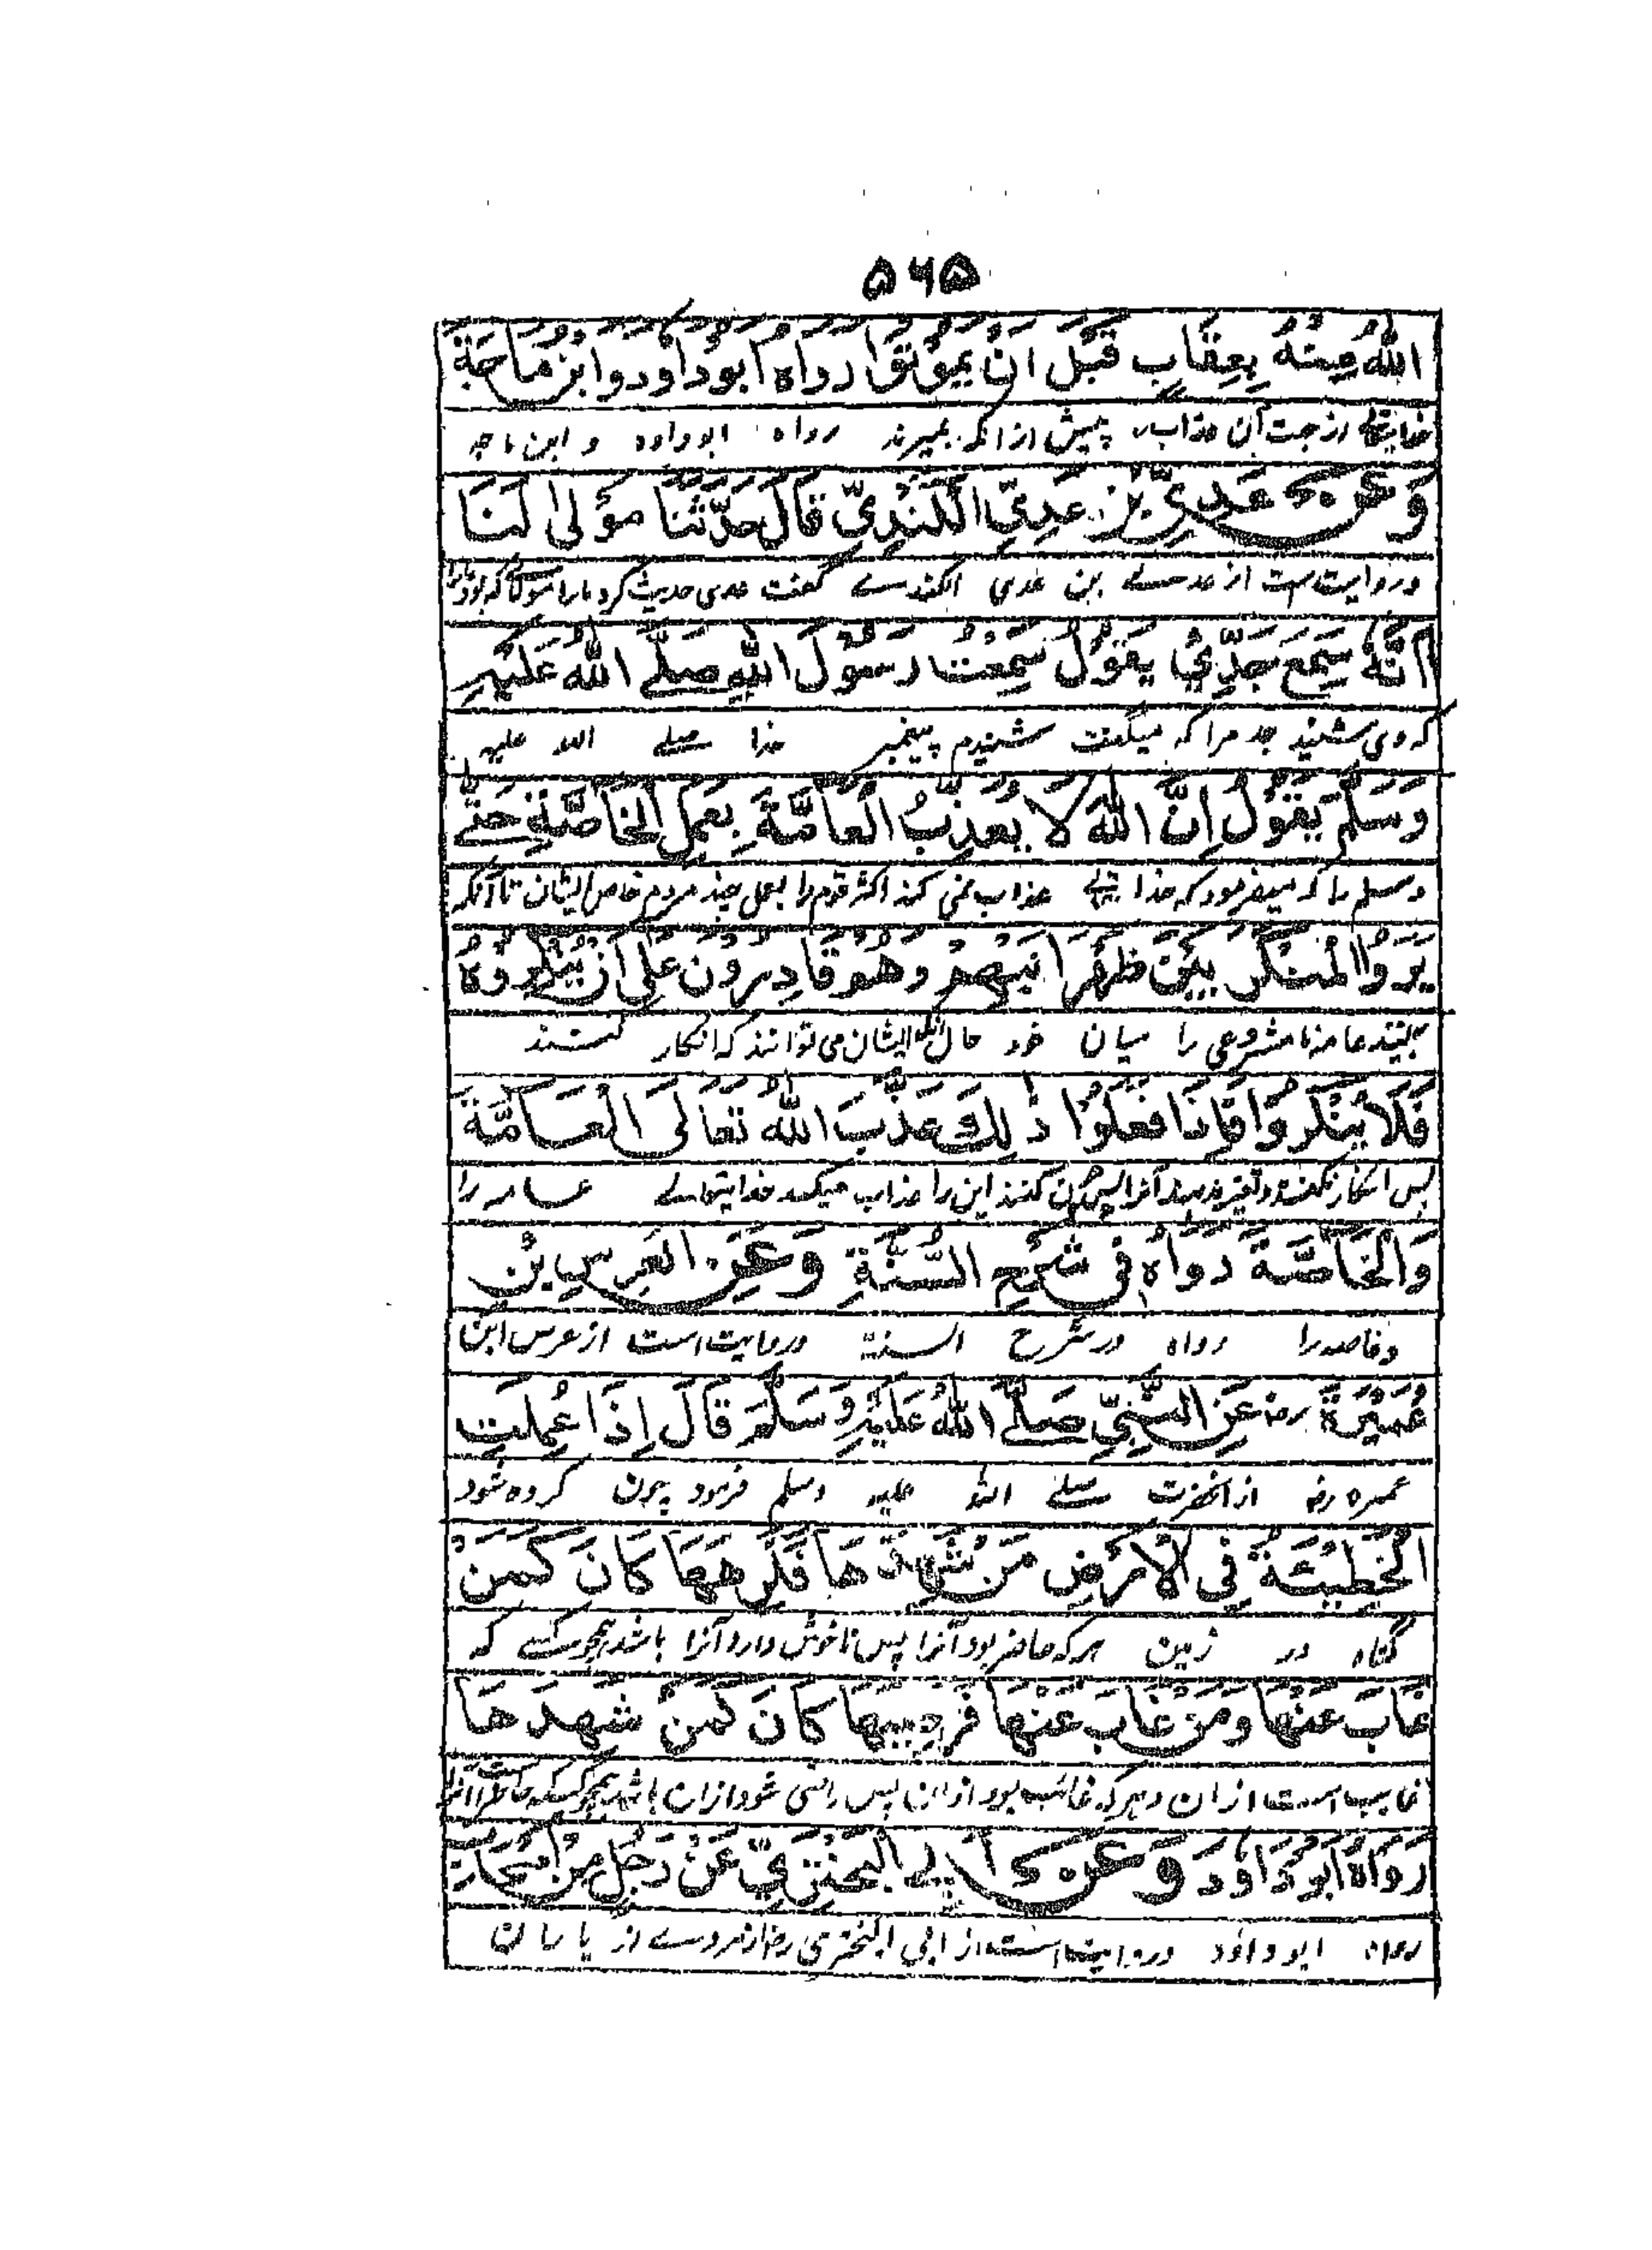 ۵۶۵
اللهُ مِنْهُ بِعِقَابٍ قَبْلَ اَنْ يَمُوْتُوْا رَوَاهُ اَبُوْدَاوُدَ وَابْنُ مَاجَةَ
خدایتعالے از جهت آن عذاب پیش از انکه بمیرند رواه ابو داود و ابن ماجه
وَعَنْ عَدِيِّ بْنِ عَدِيِّ الْكِنْدِيِّ قَالَ حَدَّثَنَا مَوْلًى لَنَا
و روایت ست از عدے بن عدی الکندے گفت عدی حدیث کرد مارا
اَنَّهُ سَمِعَ جَدِّيْ يَقُوْلُ سَمِعْتُ رَسُوْلَ اللهِ صَلَّے اللهُ عَلَيْهِ
که وی شنید جد مرا که میگفت شنیدم پیغمبر خدا صلے الله علیه
وَسَلَّمَ يَقُوْلُ اِنَّ اللهَ لَا يُعَذِّبُ الْعَامَّةَ بِعَمَلِ الْخَاصَّةِ حَتّٰے
وسلم را که میفرمود که خدا تعالے عذاب نمی کند اکثر قوم را بعمل چند مردم خاص ایشان تا آنکه
يَرَوُا الْمُنْكَرَ بَيْنَ ظَهْرَانَيْهِمْ وَهُمْ قَادِرُوْنَ عَلٰى اَنْ يُنْكِرُوْهُ
ببینند عامه نامشروعی را میان خود حال آنکه ایشان می توانند که انکار کنند
فَلَا يُنْكِرُوْا فَاِذَا فَعَلُوْا ذٰلِكَ عَذَّبَ اللهُ تَعَالَى الْعَامَّةَ
پس انکار نکنند کنند این را عذاب میکند خدایتعالے عامه را
وَالْخَاصَّةَ رَوَاهُ فِيْ شَرْحِ السُّنَّةِ وَعَنِ الْعُرْسِ بْنِ
و خاصه را رواه در شرح السنة و روایت است از عرس ابن
عُمَيْرَةَ رض عَنِ النَّبِيِّ صَلَّے اللهُ عَلَيْهِ وَسَلَّمَ قَالَ اِذَا عُمِلَتِ
عمیره رض از آنحضرت صلے الله علیه وسلم فرمود چون کرده شود
الْخَطِيْئَةُ فِي الْاَرْضِ مَنْ شَهِدَهَا فَكَرِهَهَا كَانَ كَمَنْ
گناه در زمین هر که حاضر بود آنرا پس ناخوش دارد آنرا باشد همچو کسے که
غَابَ عَنْهَا وَمَنْ غَابَ عَنْهَا فَرَضِيَهَا كَانَ كَمَنْ شَهِدَهَا
غایب است ازان و هر که غائب بود ازان پس راضی شود ازان باشد همچو کسیکه
رَوَاهُ اَبُوْ دَاوُدَ وَعَنْ اَبِے الْبَخْتَرِيِّ عَنْ رَجُلٍ مِنْ اَصْحَابِ
رواه ابو داود و روایت است از ابی البختری رض از مردے از یاران